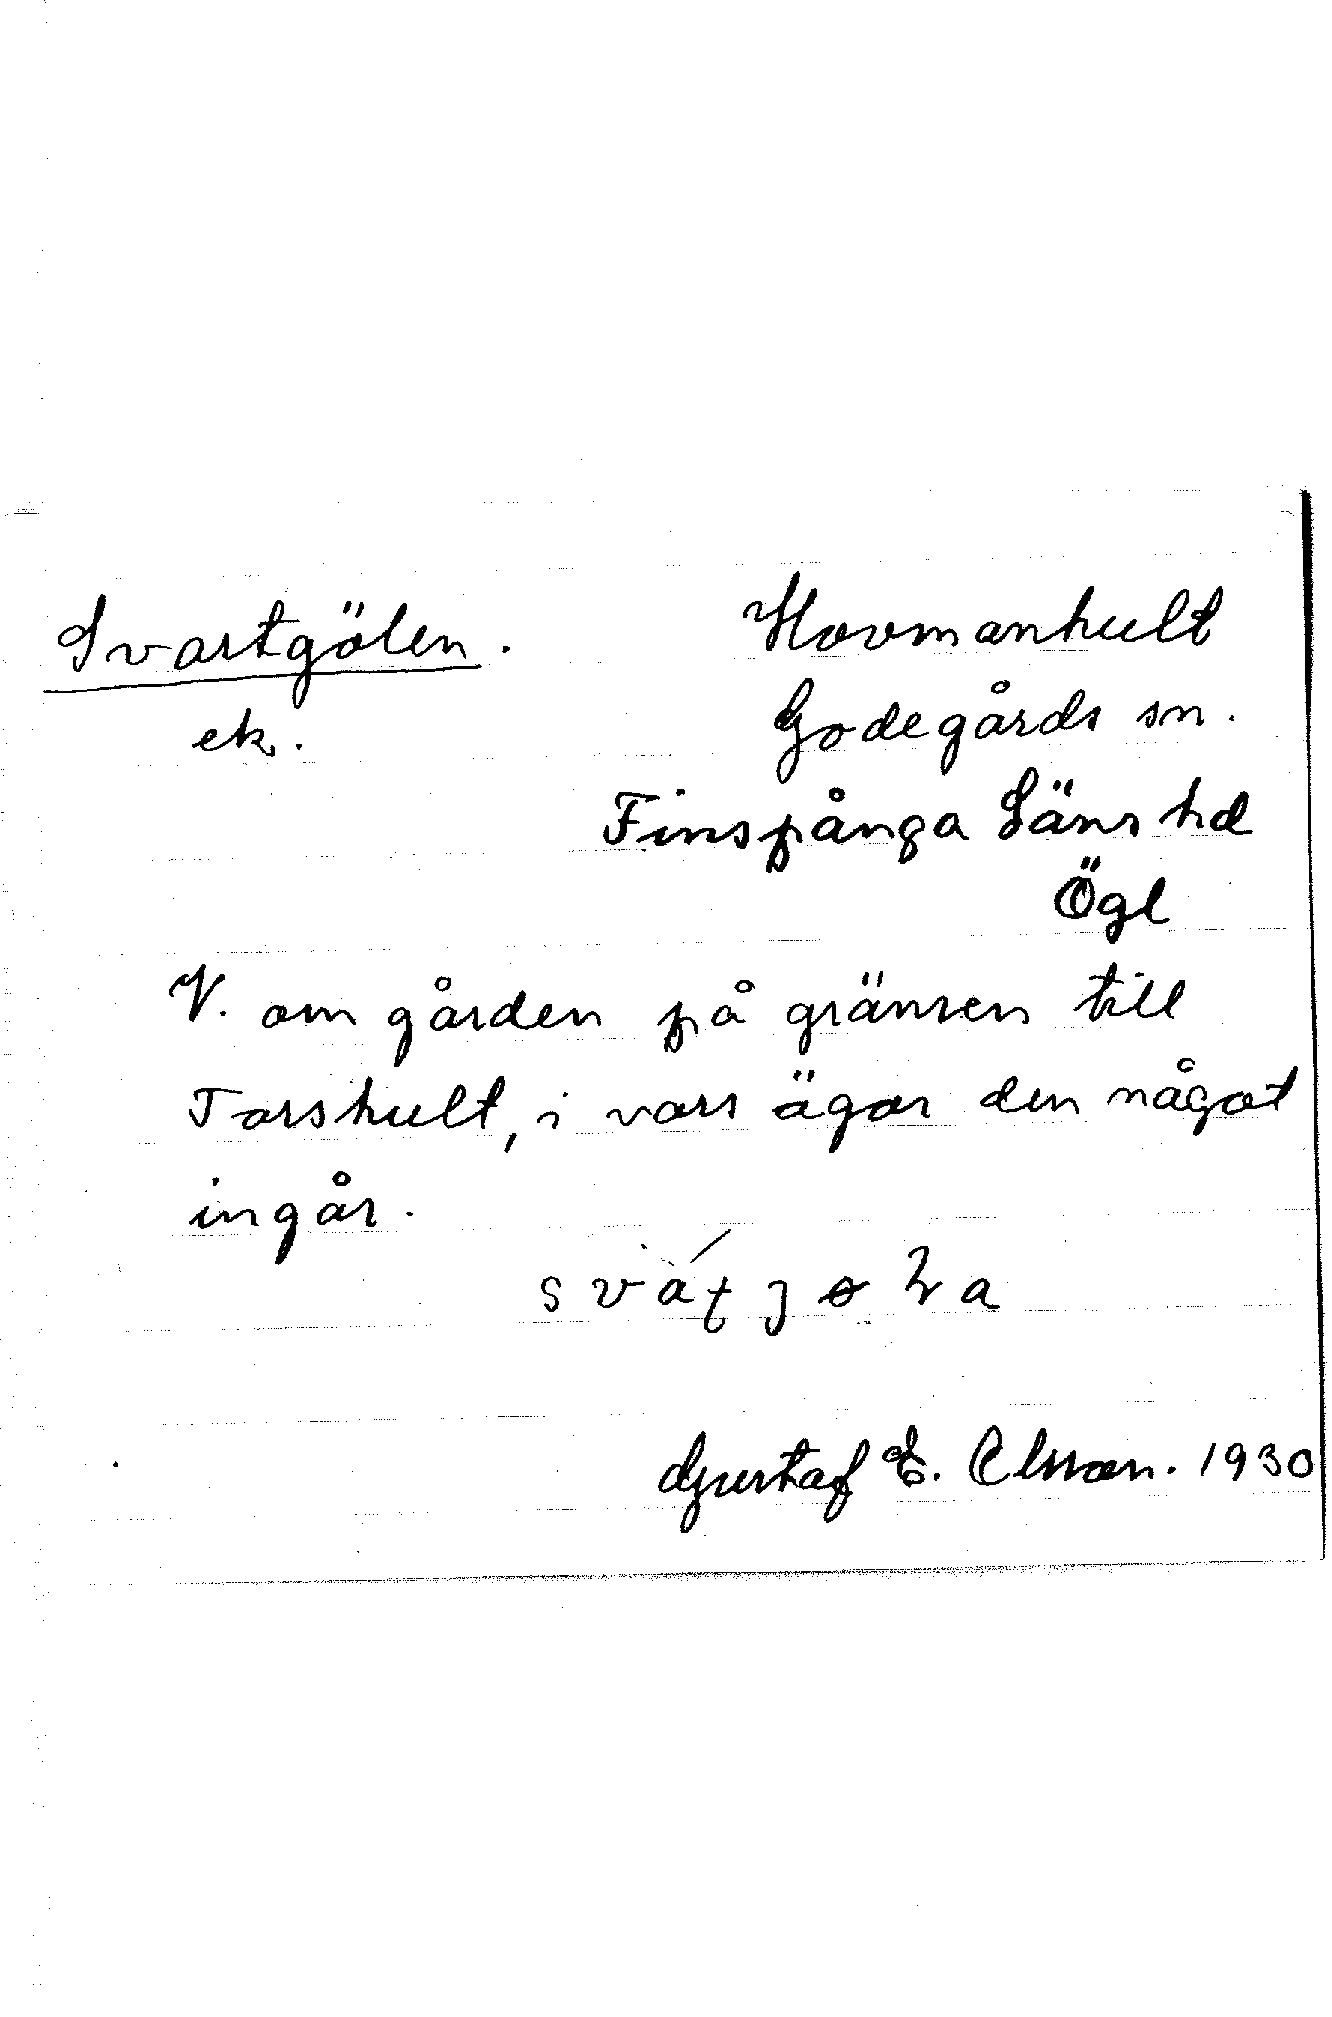 Svartgölen. Hovmanhult
ek. Godegårds sn.
Finspånga Läns hd
Ögl
V. om gården på gränsen till
Torshult, i vars ägor den något
ingår.
Gustaf E. Olsson. 1930